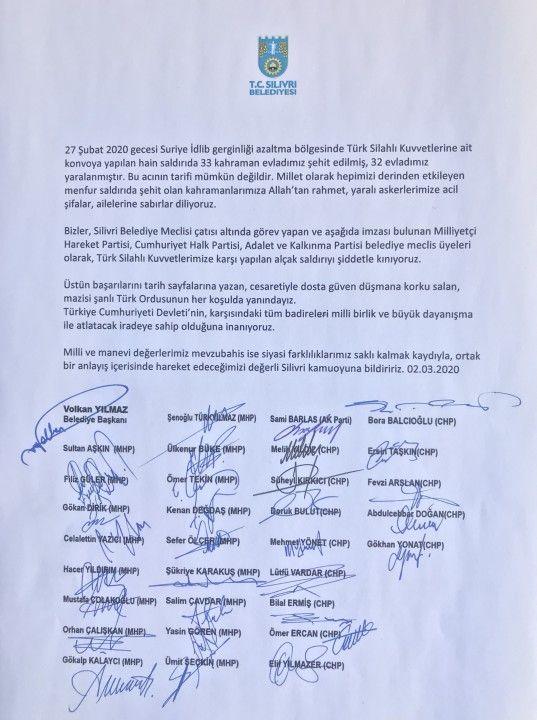 T.C. SİLİVRİ
BELEDİYESİ
27 Şubat 2020 gecesi Suriye İdlib gerginliği azaltma bölgesinde Türk Silahlı Kuvvetlerine ait
konvoya yapılan hain saldırıda 33 kahraman evladımız şehit edilmiş, 32 evladımız
yaralanmıştır. Bu acının tarifi mümkün değildir. Millet olarak hepimizi derinden etkileyen
menfur saldırıda şehit olan kahramanlarımıza Allah'tan rahmet, yaralı askerlerimize acil
şifalar, ailelerine sabırlar diliyoruz.
Bizler, Silivri Belediye Meclisi çatısı altında görev yapan ve aşağıda imzası bulunan Milliyetçi
Hareket Partisi, Cumhuriyet Halk Partisi, Adalet ve Kalkınma Partisi belediye meclis üyeleri
olarak, Türk Silahlı Kuvvetlerimize karşı yapılan alçak saldırıyı şiddetle kınıyoruz.
Üstün başarılarını tarih sayfalarına yazan, cesaretiyle dosta güven düşmana korku salan,
mazisi şanlı Türk Ordusunun her koşulda yanındayız.
Türkiye Cumhuriyeti Devleti'nin, karşısındaki tüm badireleri milli birlik ve büyük dayanışma
ile atlatacak iradeye sahip olduğuna inanıyoruz.
Milli ve manevi değerlerimiz mevzubahis ise siyasi farklılıklarımız saklı kalmak kaydıyla, ortak
bir anlayış içerisinde hareket edeceğimizi değerli Silivri kamuoyuna bildiririz. 02.03.2020
Volkan YILMAZ
Belediye Başkanı Şenoğlu TÜRKYILMAZ (MHP) Sami BARLAS (AK Parti) Bora BALCIOĞLU (CHP)
Sultan AŞKIN (MHP) Ülkenur BÜKE (MHP) Melih (CHP) Ersin TAŞKIN(CHP)
Filiz GÜLER(MHP) Ömer TEKİN (MHP) Süheyl KIRKICI (CHP) Fevzi ARSLAN(CHP)
Gökan DİRİK (MHP) Kenan DEĞDAŞ (MHP) Doruk BULUT(CHP) Abdulcebbar DOĞAN(CHP)
Celalettin YAZICI (MHP) Sefer ÖLÇER (MHP) Mehmet YÖNET (CHP) Gökhan YONAT(CHP)
Hacer YILDIRIM (MHP) Şükriye KARAKUŞ (MHP) Lütfü VARDAR (CHP)
Mustafa ÇOLAKOĞLU (MHP) Salim ÇAVDAR (MHP) Bilal ERMİŞ (CHP)
Orhan ÇALIŞKAN (MHP) Yasin GÖREN (MHP) Ömer ERCAN (CHP)
Gökalp KALAYCI (MHP) Ümit SEÇKİN (MHP) Elif YILMAZER (CHP)